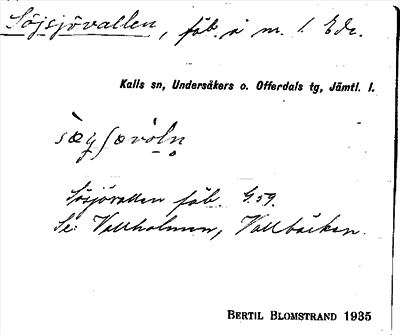 Söjsjövallen, fäb. å nr. 1. Ede.
Kalls sn, Undersåkers o. Offerdals tg, Jämtl. l.
Sösjövallen fäb. G.59.
Se: Vallholmen, Vallbäcken.
BERTIL BLOMSTRAND 1935